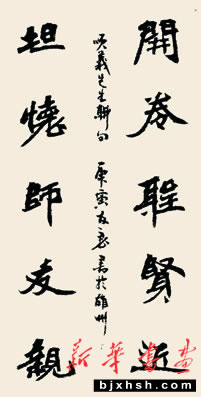 開卷聖賢近
先生聯句 庚寅 書於雄州
坦懷師友親
新華書畫
www.bjxhsh.com